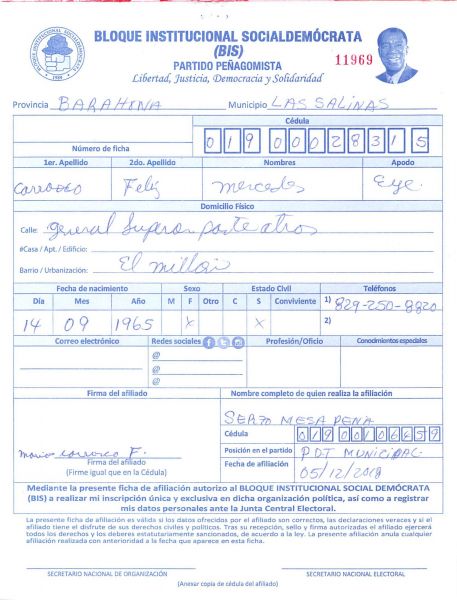 BLOQUE INSTITUCIONAL SOCIALDEMÓCRATA
(BIS)
PARTIDO PEÑAGOMISTA
11969
Libertad, Justicia, Democracia y Solidaridad
Provincia BARAHONA Municipio LAS SALINAS
Cédula
Número de ficha 019 0002831 5
1er. Apellido 2do. Apellido Nombres Apodo
Carrasco Feliz Mercedes Eye.
Domicilio Físico
Calle: General Superon parte atros
#Casa / Apt. / Edificio:
Barrio / Urbanización: El millon
Fecha de nacimiento Sexo Estado Civil Teléfonos
Día Mes Año M F Otro C S Conviviente 1) 829-250-8820
14 09 1965 X X 2)
Correo electrónico Redes sociales Profesión/Oficio Conocimientos especiales
@
@
@
Firma del afiliado Nombre completo de quien realiza la afiliación
SERJO MESA PEÑA
Cédula 019 0010665 9
carrasco F. Posición en el partido PDT MUNICIPAL.
Firma del afiliado Fecha de afiliación 05/12/2018
(Firme igual que en la Cédula)
Mediante la presente ficha de afiliación autorizo al BLOQUE INSTITUCIONAL SOCIAL DEMÓCRATA
(BIS) a realizar mi inscripción única y exclusiva en dicha organización política, así como a registrar
mis datos personales ante la Junta Central Electoral.
La presente ficha de afiliación es válida si los datos ofrecidos por el afiliado son correctos, las declaraciones veraces y si el
afiliado tiene el disfrute de sus derechos civiles y políticos. Tras su recepción, sello y firma autorizadas el afiliado ejercerá
todos los derechos y los deberes estatutariamente sancionados, de acuerdo a la ley. La presente afiliación anula cualquier
afiliación realizada con anterioridad a la fecha que aparece en esta ficha.
SECRETARIO NACIONAL DE ORGANIZACIÓN SECRETARIO NACIONAL ELECTORAL
(Anexar copia de cédula del afiliado)